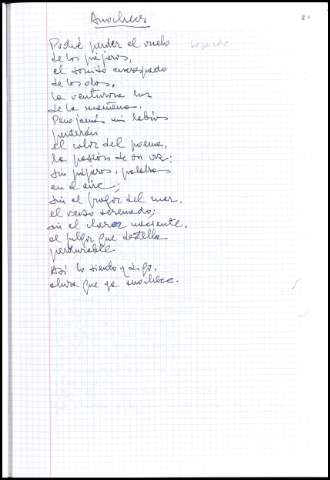 Anochece
Podré perder el vuelo
de los pájaros,
el sonido encrespado
de las olas,
la venturosa luz
de la mañana.
Pero jamás mis labios
perderán
el calor del poema,
la pasión de su voz;
sin pájaros, palabras
en el aire;
sin el fragor del mar,
el verso serenado;
sin el clarear naciente,
el fulgor que destella
perdurable
Así lo siento y digo,
ahora que ya anochece.